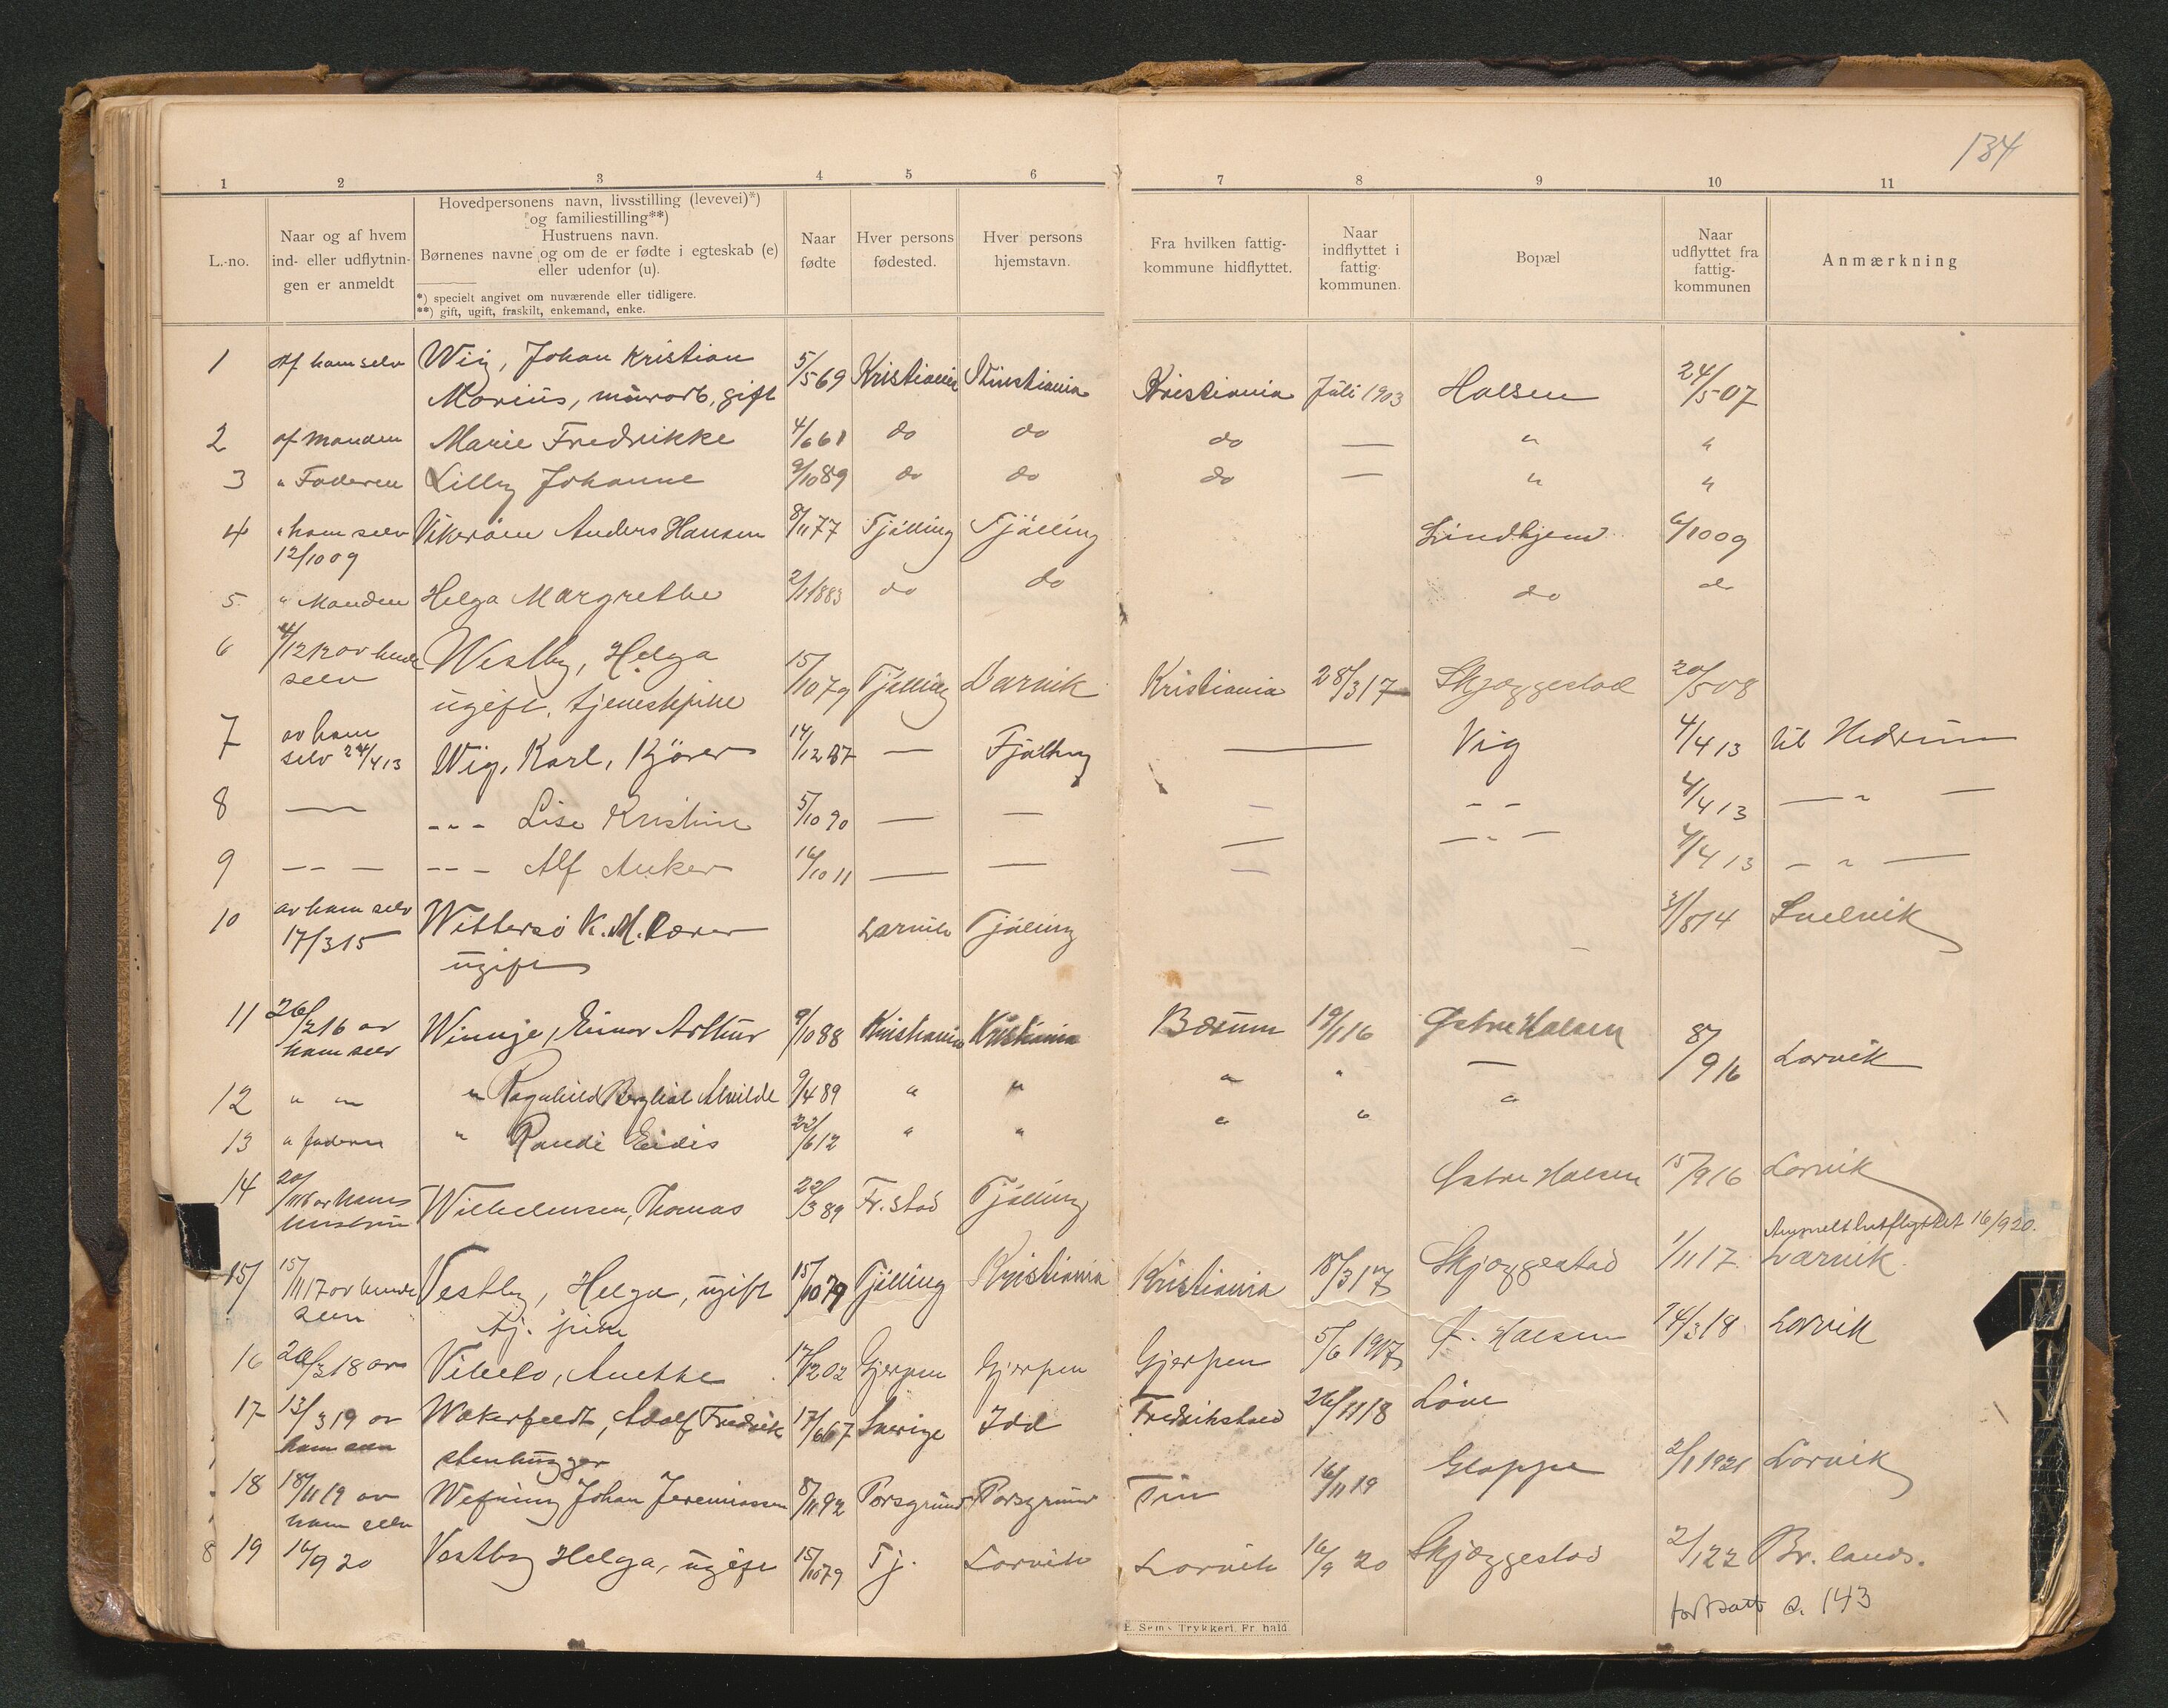 134
1 2 3 4 5 6 7 8 9 10 11
L.-no.
Naar og af hvem
ind- eller udflytnin-
gen er anmeldt
Hovedpersonens navn, livsstilling (levevei)*)
og familiestilling**)
Hustruens navn.
Børnenes navne og om de er fødte i egteskab (e)
eller udenfor (u).
*) specielt angivet om nuværende eller tidligere.
**) gift, ugift, fraskilt, enkemand, enke.
Naar
fødte
Hver persons
fødested.
Hver persons
hjemstavn.
Fra hvilken fattig-
kommune hidflyttet.
Naar
indflyttet i
fattig-
kommunen.
Bopæl
Naar
udflyttet fra
fattig-
kommunen
Anmærkning
1 Af ham selv Wiij, Johan Kristian 5/5 69 Kristiania Kristiania Kristiania Juli 1903 Halsen 24/5 07
Marius, murarb, gift
2 af Manden Marie Fredrikke 4/6 61 do do do — " "
3 " Faderen Lilly Johanne 9/10 89 do do do — " "
4 " ham selv Vikerøen Anders Hansen 8/11 77 Tjølling Tjølling Lindhjem 6/10 09
12/10 09
5 " Manden Helga Margrethe 2/1 1883 do do do do
6 4/12 12 av hende Westby, Helga 15/10 79 Tjølling Larvik Kristiania 28/3 17 Skjæggestad 20/5 08
selv ugift, tjenestpike
7 av ham Wiig, Karl, Kjører 14/12 87 — Tjølling — Vig 4/4 13 til Hedrum
selv 24/4 13
8 — - - - Lise Kristine 5/10 90 — — — - - 4/4 13 — " —
9 — — — - - - Alf Anker 16/10 11 — — — — " — 4/4 13 — " —
10 av ham selv Wittersø K. M. Lærer Larvik Tjølling 31/8 14 Svelvik
17/3 15 ugift
11 26/2 16 av Winnje, Einar Arthur 9/10 88 Kristiania Kristiania Bærum 19/1 16 Østre Halsen 8/9 16 Larvik
ham selv
12 " " " Ragnhild Bergliot Alvilde 9/4 89 " " " " —
13 " faderen " Randi Eidis 22/6 12 " " " " "
14 20/11 16 av hans Wilhelmsen, Thomas 22/3 89 Fr.stad Tjølling Østre Halsen 15/9 16 Larvik
hustru
Anmeldt utflyttet 16/9 20.
15 15/11 17 av hende Vestby, Helga, ugift 15/10 79 Tjølling Kristiania Kristiania 18/3 17 Skjæggestad 1/11 17 Larvik
selv tj. pike
16 20/3 18 av Viheto, Anethe 17/12 02 Gjerpen Gjerpen Gjerpen 5/6 1917 Ø. Halsen 14/3 18 Larvik
17 13/3 19 av Wakerfeldt, Adolf Fredrik 17/6 67 Sverige Idd Fredrikstad 26/11 18 Løve
ham selv stenhugger
18 18/11 19 av Wefring Johan Jeremiassen 8/11 92 Porsgrund Porsgrund Tin 16/11 19 Gloppe 2/1 1921 Larvik
ham selv
19 16/9 20 Vestby Helga, ugift 15/10 79 Tj. Larvik Larvik 16/9 20 Skjæggestad 2/1 22 Br. lands.
fortsatt s. 143
E. Sem's Trykkeri, Fr.hald